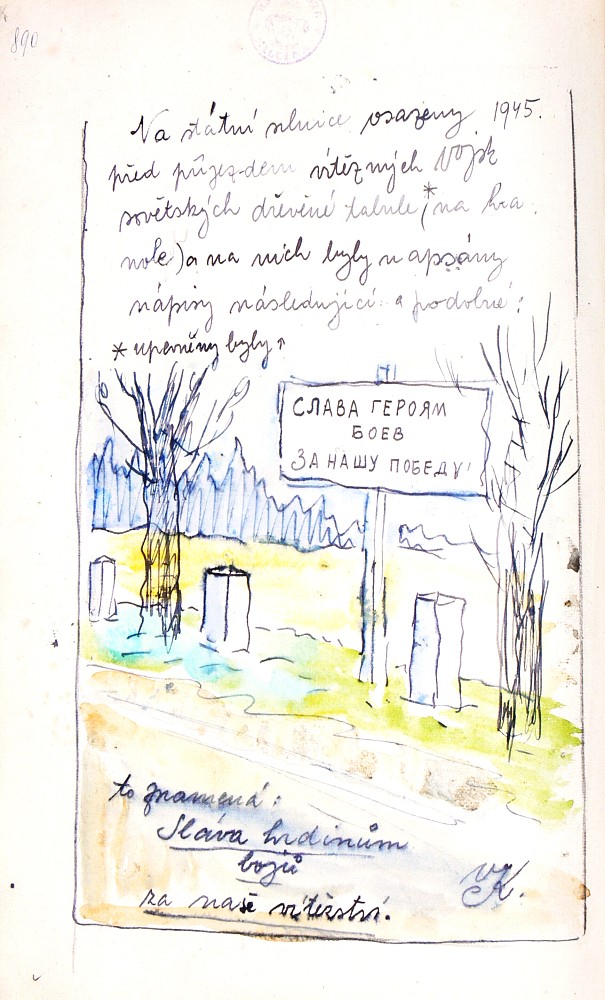 890
Na státní silnice osazeny 1945.
před příjezdem vítězných vojsk
sovětských dřevěné tabule,* (na hra
nole) a na nich byly napsány
nápisy následující a podobné:
* upevněny byly ↑
СЛАВА ГЕРОЯМ
БОЕВ
ЗА НАШУ ПОБЕДУ!
to znamená:
Sláva hrdinům
bojů
za naše vítězství.
VK.